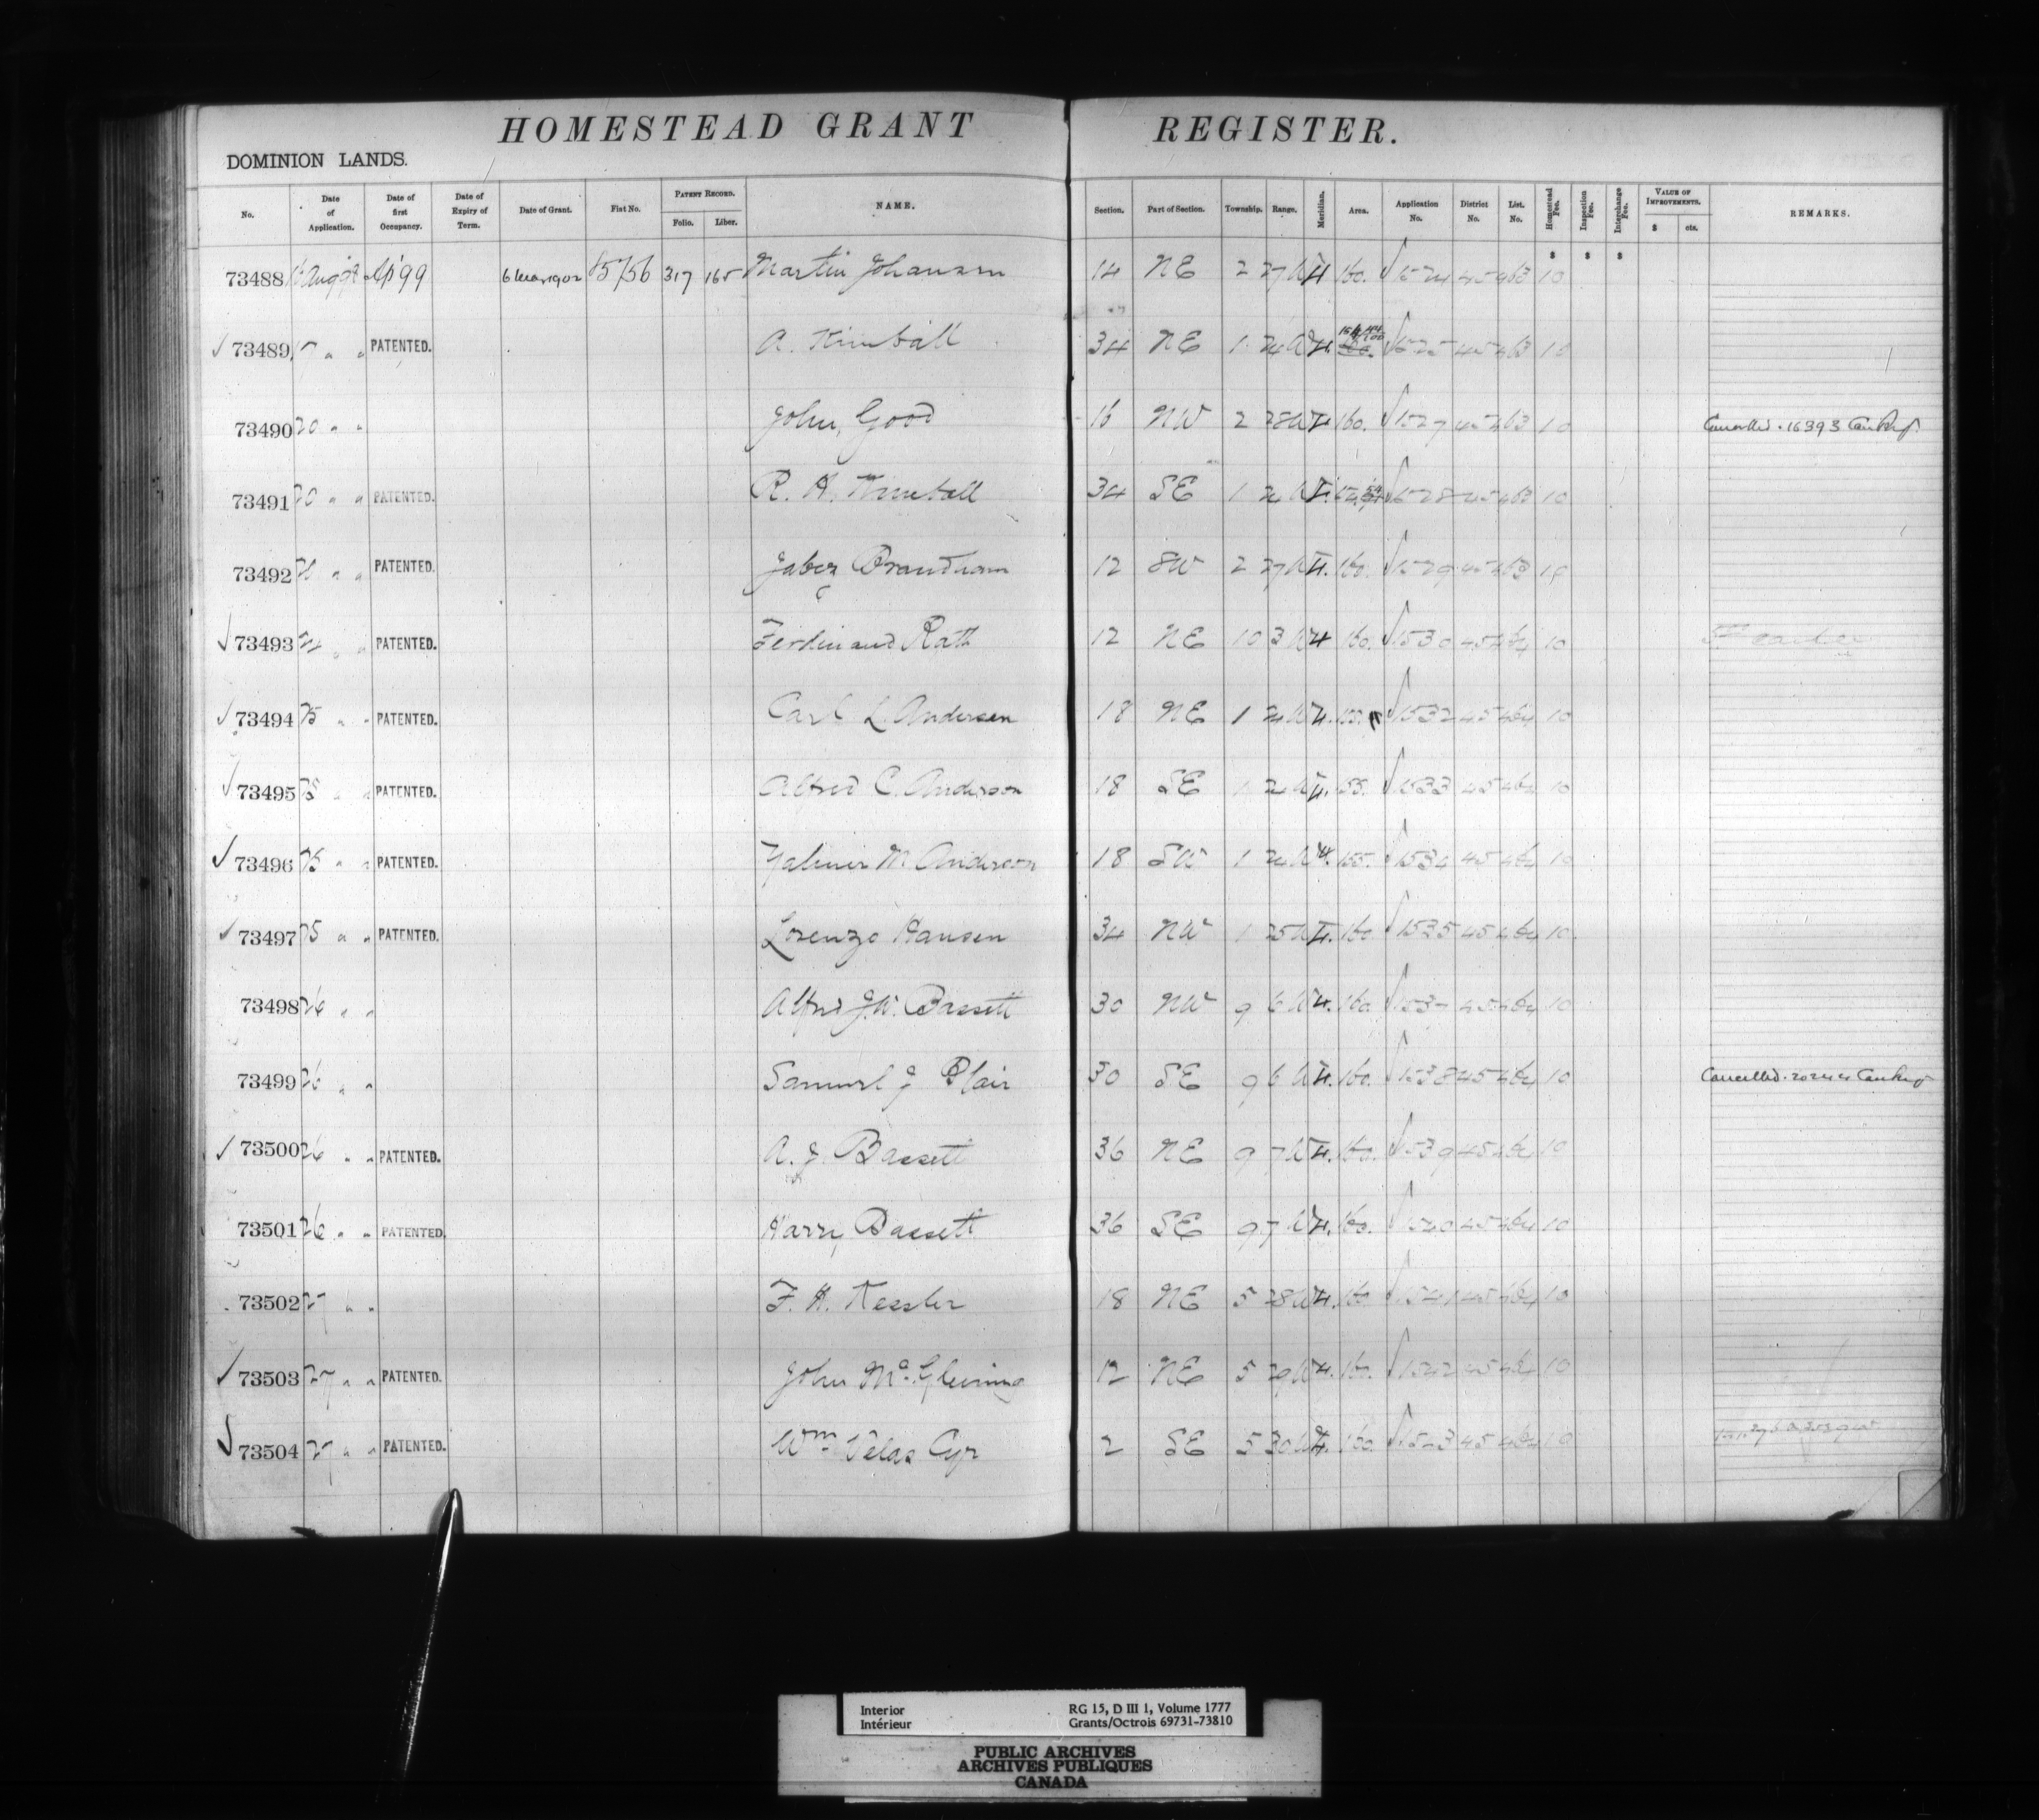 HOMESTEAD GRANT REGISTER.
DOMINION LANDS.
No. Date of Application. Date of first Occupancy. Date of Expiry of Term. Date of Grant. Fiat No. PATENT RECORD. Folio. Liber. NAME. Section. Part of Section. Township. Range. Meridian. Area. Application No. District No. List. No. Homestead Fee. Inspection Fee. Interchange Fee. VALUE OF IMPROVEMENTS. $ cts. REMARKS.
$ $ $
73488 Aug 98 Ap 99 6 Mar 1902 317 165 Martin Johansen 14 NE 2 27 W 4 160. 1524 45 10
73489 17 " " PATENTED. A. Kimball 34 NE 1 24 W 4. 1525 45 10
73490 20 " " John Good 16 NW 2 28 W 4 160. 1527 45 10 Cancelled. 16393
73491 20 " " PATENTED. R. H. Kimball 34 SE 1 24 W 4. 1528 45 10
73492 " " PATENTED. Jabez 12 SW 2 27 W 4. 160. 1529 45 10
73493 " " PATENTED. Ferdinand Rath 12 NE 10 3 W 4 160. 1530 45 10
73494 25 " " PATENTED. Carl L. Andersen 18 NE 1 24 W 4. 1532 45 10
73495 25 " " PATENTED. Alfred C. Anderson 18 SE 1 24 W 4. 155. 1533 45 10
73496 25 " " PATENTED. M. Anderson 18 SW 1 24 W 4. 155. 1534 45 10
73497 25 " " PATENTED. Lorenzo Hansen 34 NW 1 25 W 4. 160 1535 45 10
73498 26 " " Alfred J. W. Bassett 30 NW 9 6 W 4. 160. 1537 45 10
73499 26 " " Samuel J Blair 30 SE 9 6 W 4. 160. 1538 45 10 Cancelled.
73500 26 " " PATENTED. A. J. Bassett 36 NE 9 7 W 4. 160. 1539 45 10
73501 26 " " PATENTED. Harry Bassett 36 SE 9 7 W 4. 160. 1540 45 10
73502 27 " " F. H. Kessler 18 NE 5 28 W 4. 160 1541 45 10
73503 27 " " PATENTED. John 12 NE 5 29 W 4. 160. 1542 45 10
73504 27 " " PATENTED. Wm Cyr 2 SE 5 30 W 4. 160. 1543 45 10
Interior RG 15, D III 1, Volume 1777
Intérieur Grants/Octrois 69731-73810
PUBLIC ARCHIVES
ARCHIVES PUBLIQUES
CANADA